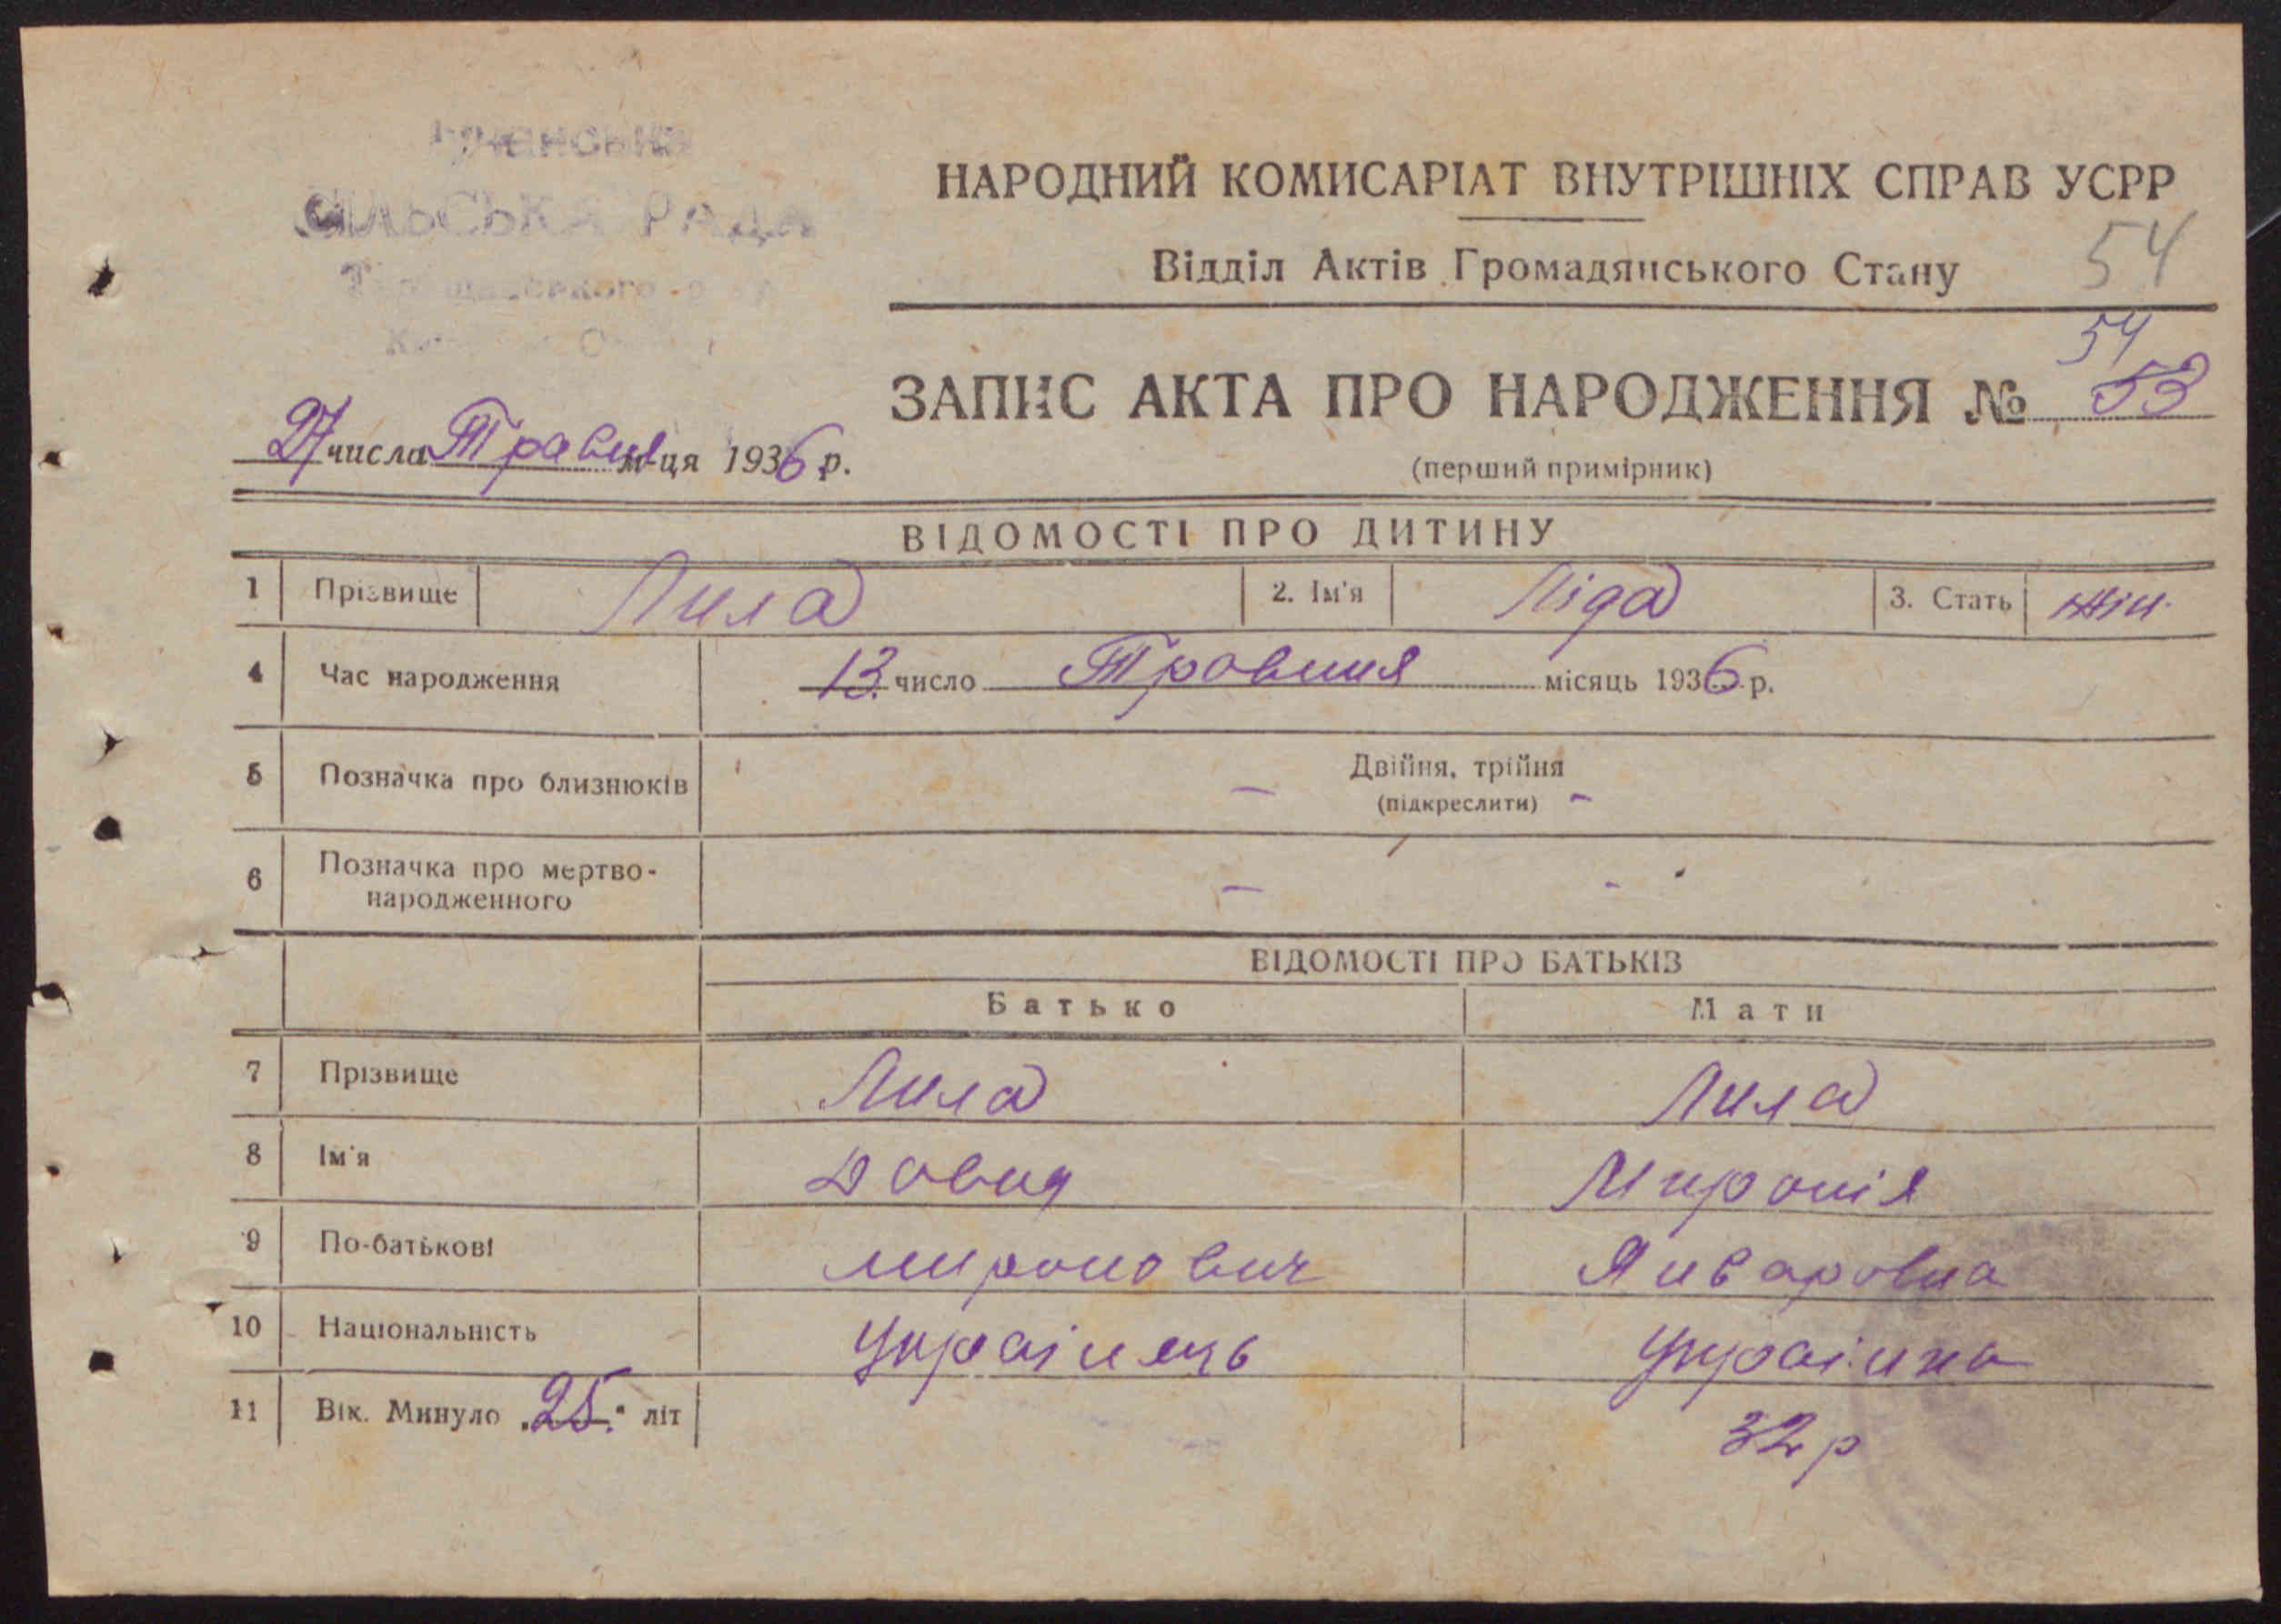 СІЛЬСЬКА РАДА
НАРОДНИЙ КОМИСАРІАТ ВНУТРІШНІХ СПРАВ УСРР
Відділ Актів Громадянського Стану
54
54
ЗАПИС АКТА ПРО НАРОДЖЕННЯ № 53
27 числа Травня м-ця 1936 р.
(перший примірник)
ВІДОМОСТІ ПРО ДИТИНУ
1 Прізвище Лила 2. Ім'я Ліда 3. Стать жін.
4 Час народження 13. число Травння місяць 1936 р.
5 Позначка про близнюків Двійня, трійня
(підкреслити)
6 Позначка про мертво-
народженного
ВІДОМОСТІ ПРО БАТЬКІВ
Батько Мати
7 Прізвище Лила Лила
8 Ім'я Довид Миронія
9 По-батькові миронович Январовна
10 Національність Українець Українка
11 Вік. Минуло „25." літ 32 р